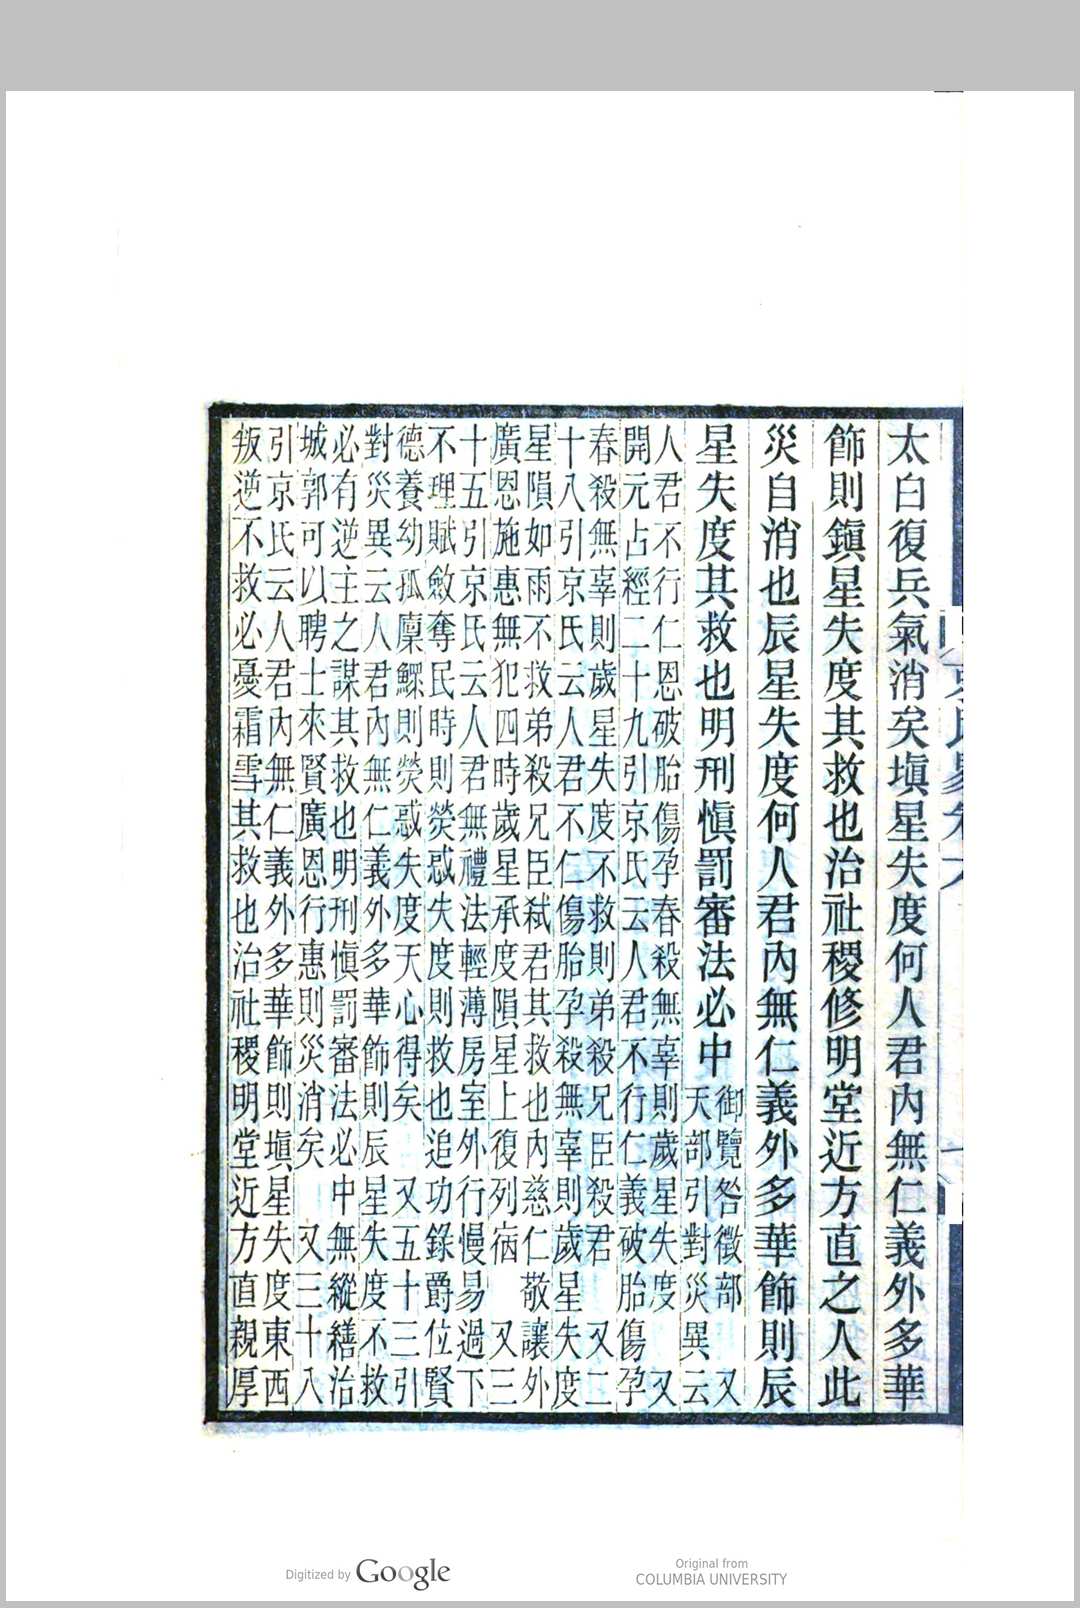 太白復兵氣消矣塡星失度何人君內無仁義外多華
飾則鎭星失度其救也治社稷修明堂近方直之人此
災自消也辰星失度何人君內無仁義外多華飾則辰
星失度其救也明刑愼罰審法必中
御覽咎徵部 又
天部引對災異云
人君不行仁恩破胎傷孕春殺無辜則歲星失度 又
開元占經二十九引京氏云人君不行仁義破胎傷孕
春殺無辜則歲星失度不救則弟殺兄臣殺君 又二
十八引京氏云人君不仁傷胎孕殺無辜則歲星失度
星隕如雨不救弟殺兄臣弑君其救也內慈仁敬讓外
廣恩施惠無犯四時歲星承度隕星上復列宿 又三
十五引京氏云人君無禮法輕薄房室外行慢易過下
不理賦斂奪民時則熒惑失度則救也追功錄爵位賢
德養幼孤廩鰥則熒惑失度天心得矣 又五十三引
對災異云人君內無仁義外多華飾則辰星失度不救
必有逆主之謀其救也明刑愼罰審法必中無縱繕治
城郭可以聘士來賢廣恩行惠則災消矣 又三十八
引京氏云人君內無仁義外多華飾則塡星失度東西
叛逆不救必憂霜雪其救也治社稷明堂近方直親厚
Digitized by Google
Original from
COLUMBIA UNIVERSITY